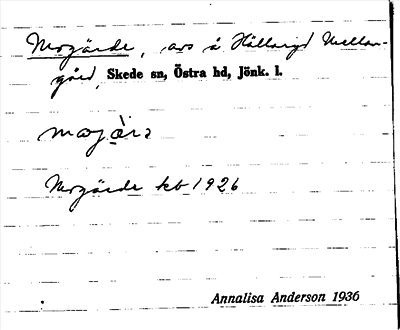 Mogärde, avs å Hållaryd Mellan-
gård, Skede sn, Östra hd, Jönk. l.
Mogärde kb 1926
Annalisa Anderson 1936